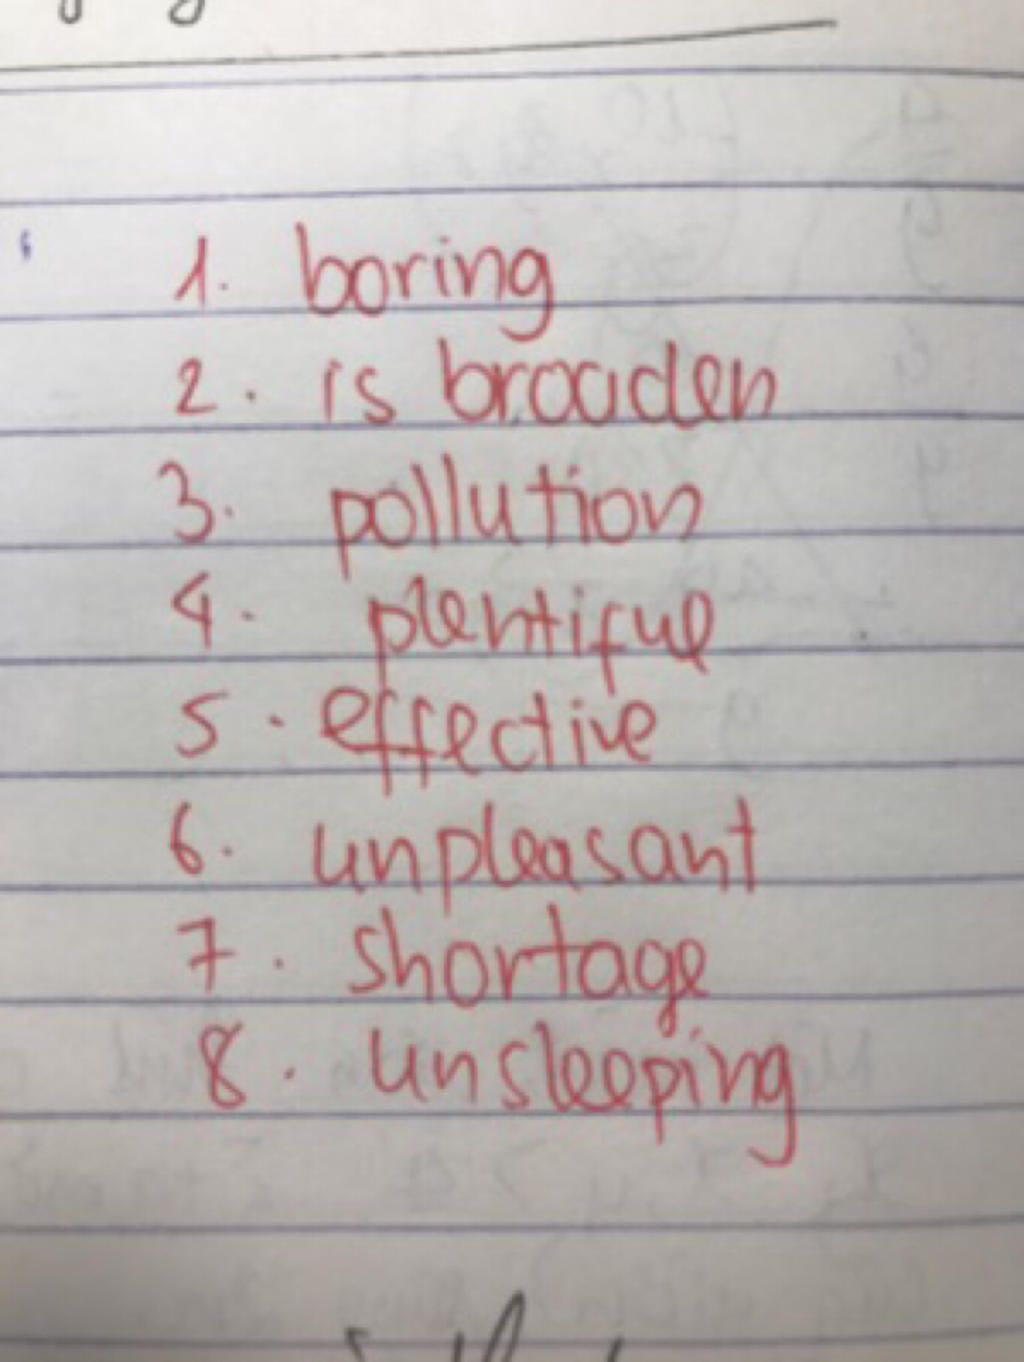 1. boring
2. is broaden
3. pollution
4. plentiful
5. effective
6. unpleasant
7. shortage
8. unsleeping